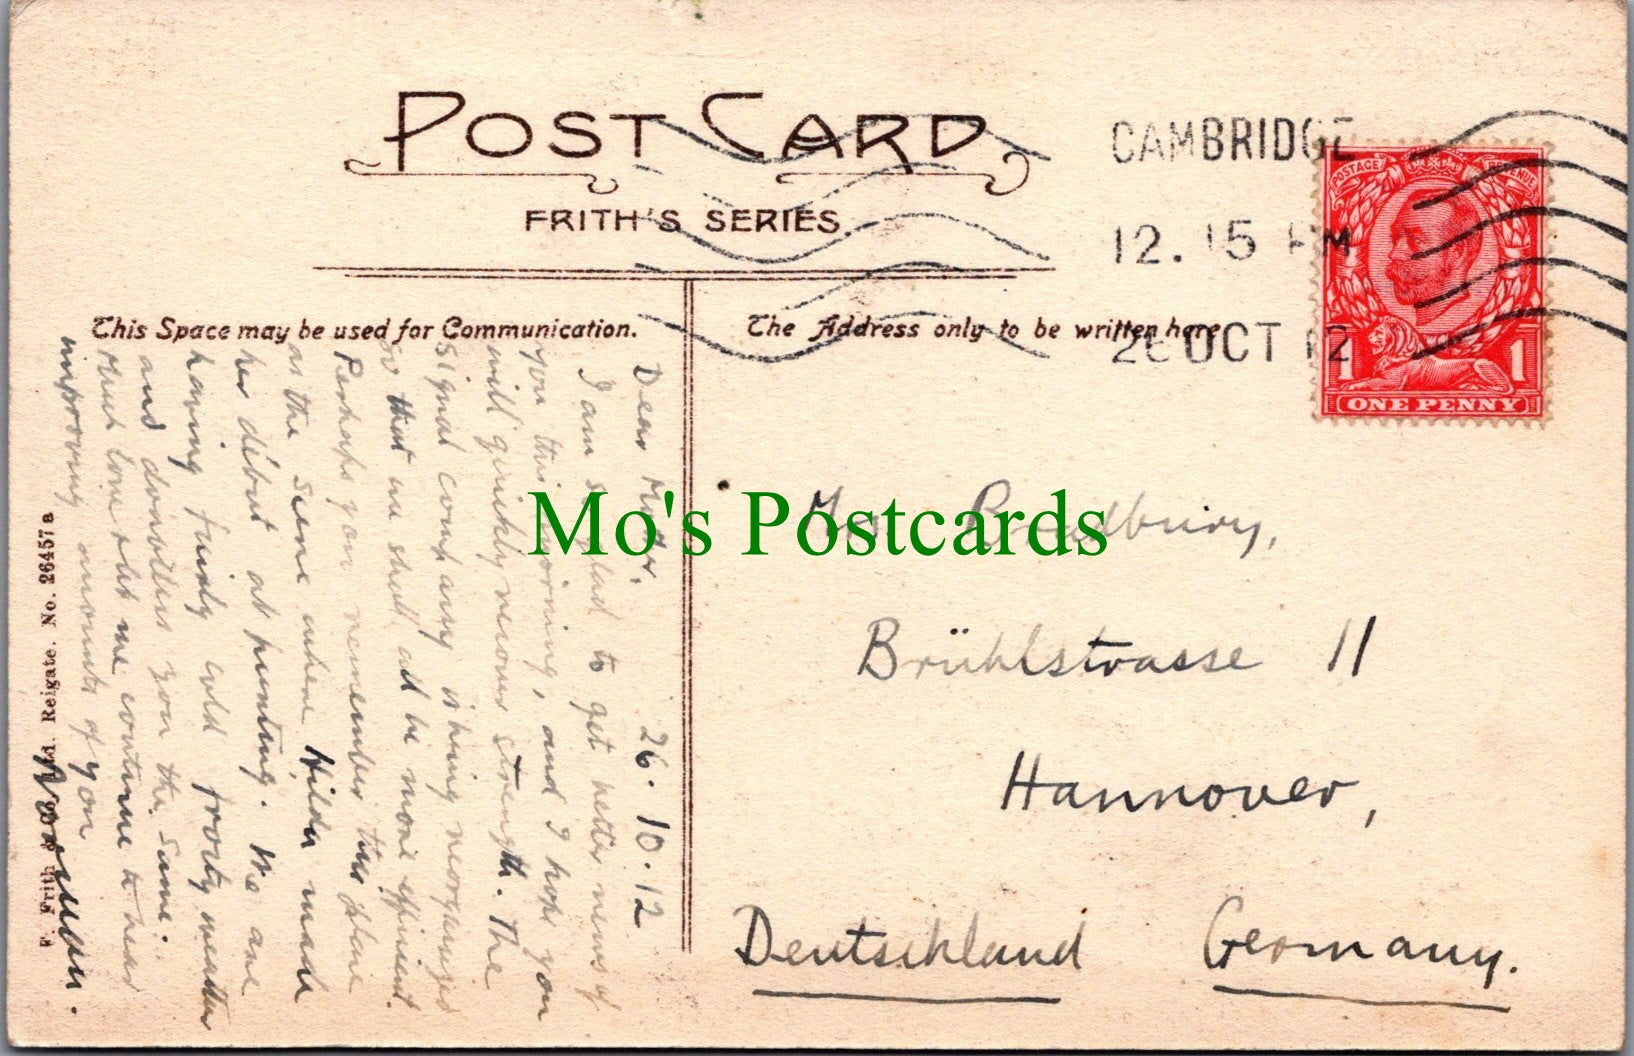 POST CARD
FRITH'S SERIES.
CAMBRIDGE
12. 15 PM
26 OCT 12
POSTAGE REVENUE
1 1
ONE PENNY
This Space may be used for Communication.
The Address only to be written here.
26.10.12
Dear
I am so glad to get better news of
you this morning, and I hope you
will quickly recover strength. The
signal company is being reorganized
so that we shall all be more efficient.
Perhaps you remember this place
as the scene where Hilda made
her début at punting. We are
having fairly cold frosty weather
and doubtless you the same:
Much love & let me continue to hear
improving accounts of you
Norman.
F. Frith & Co. Ltd. Reigate. No. 26457a
Mrs Bradbury,
Brühlstrasse 11
Hannover,
Deutschland Germany.
Mo's Postcards